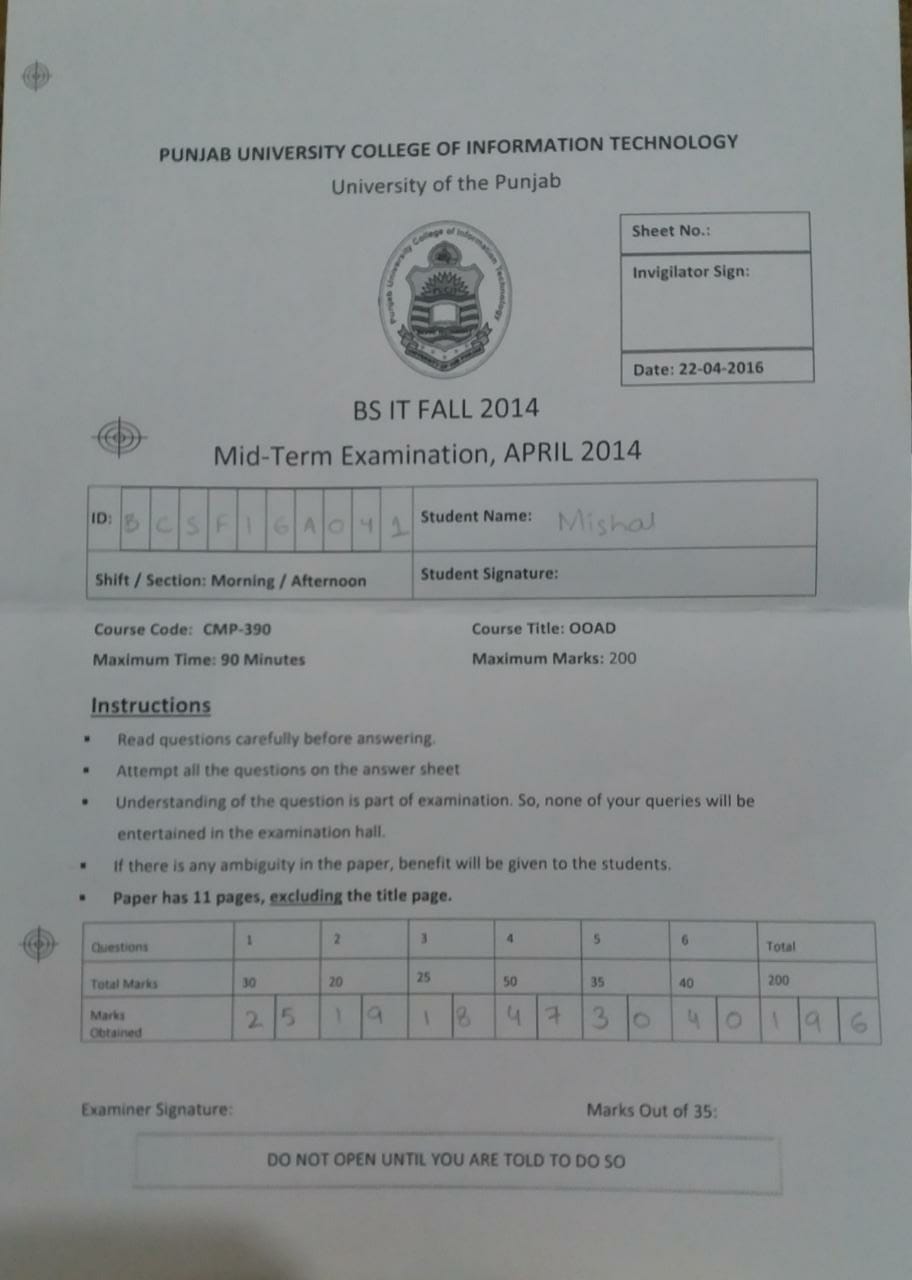 PUNJAB UNIVERSITY COLLEGE OF INFORMATION TECHNOLOGY
University of the Punjab
Punjab University College of Information Technology
Sheet No.:
Invigilator Sign:
Date: 22-04-2016
BS IT FALL 2014
Mid-Term Examination, APRIL 2014
ID: B C S F 1 6 A 0 4 1
Student Name: Mishal
Shift / Section: Morning / Afternoon
Student Signature:
Course Code: CMP-390
Course Title: OOAD
Maximum Time: 90 Minutes
Maximum Marks: 200
Instructions
▪ Read questions carefully before answering.
▪ Attempt all the questions on the answer sheet
▪ Understanding of the question is part of examination. So, none of your queries will be
entertained in the examination hall.
▪ If there is any ambiguity in the paper, benefit will be given to the students.
▪ Paper has 11 pages, excluding the title page.
Questions 1 2 3 4 5 6 Total
Total Marks 30 20 25 50 35 40 200
Marks Obtained 2 5 1 9 1 8 4 7 3 0 4 0 1 9 6
Examiner Signature:
Marks Out of 35:
DO NOT OPEN UNTIL YOU ARE TOLD TO DO SO